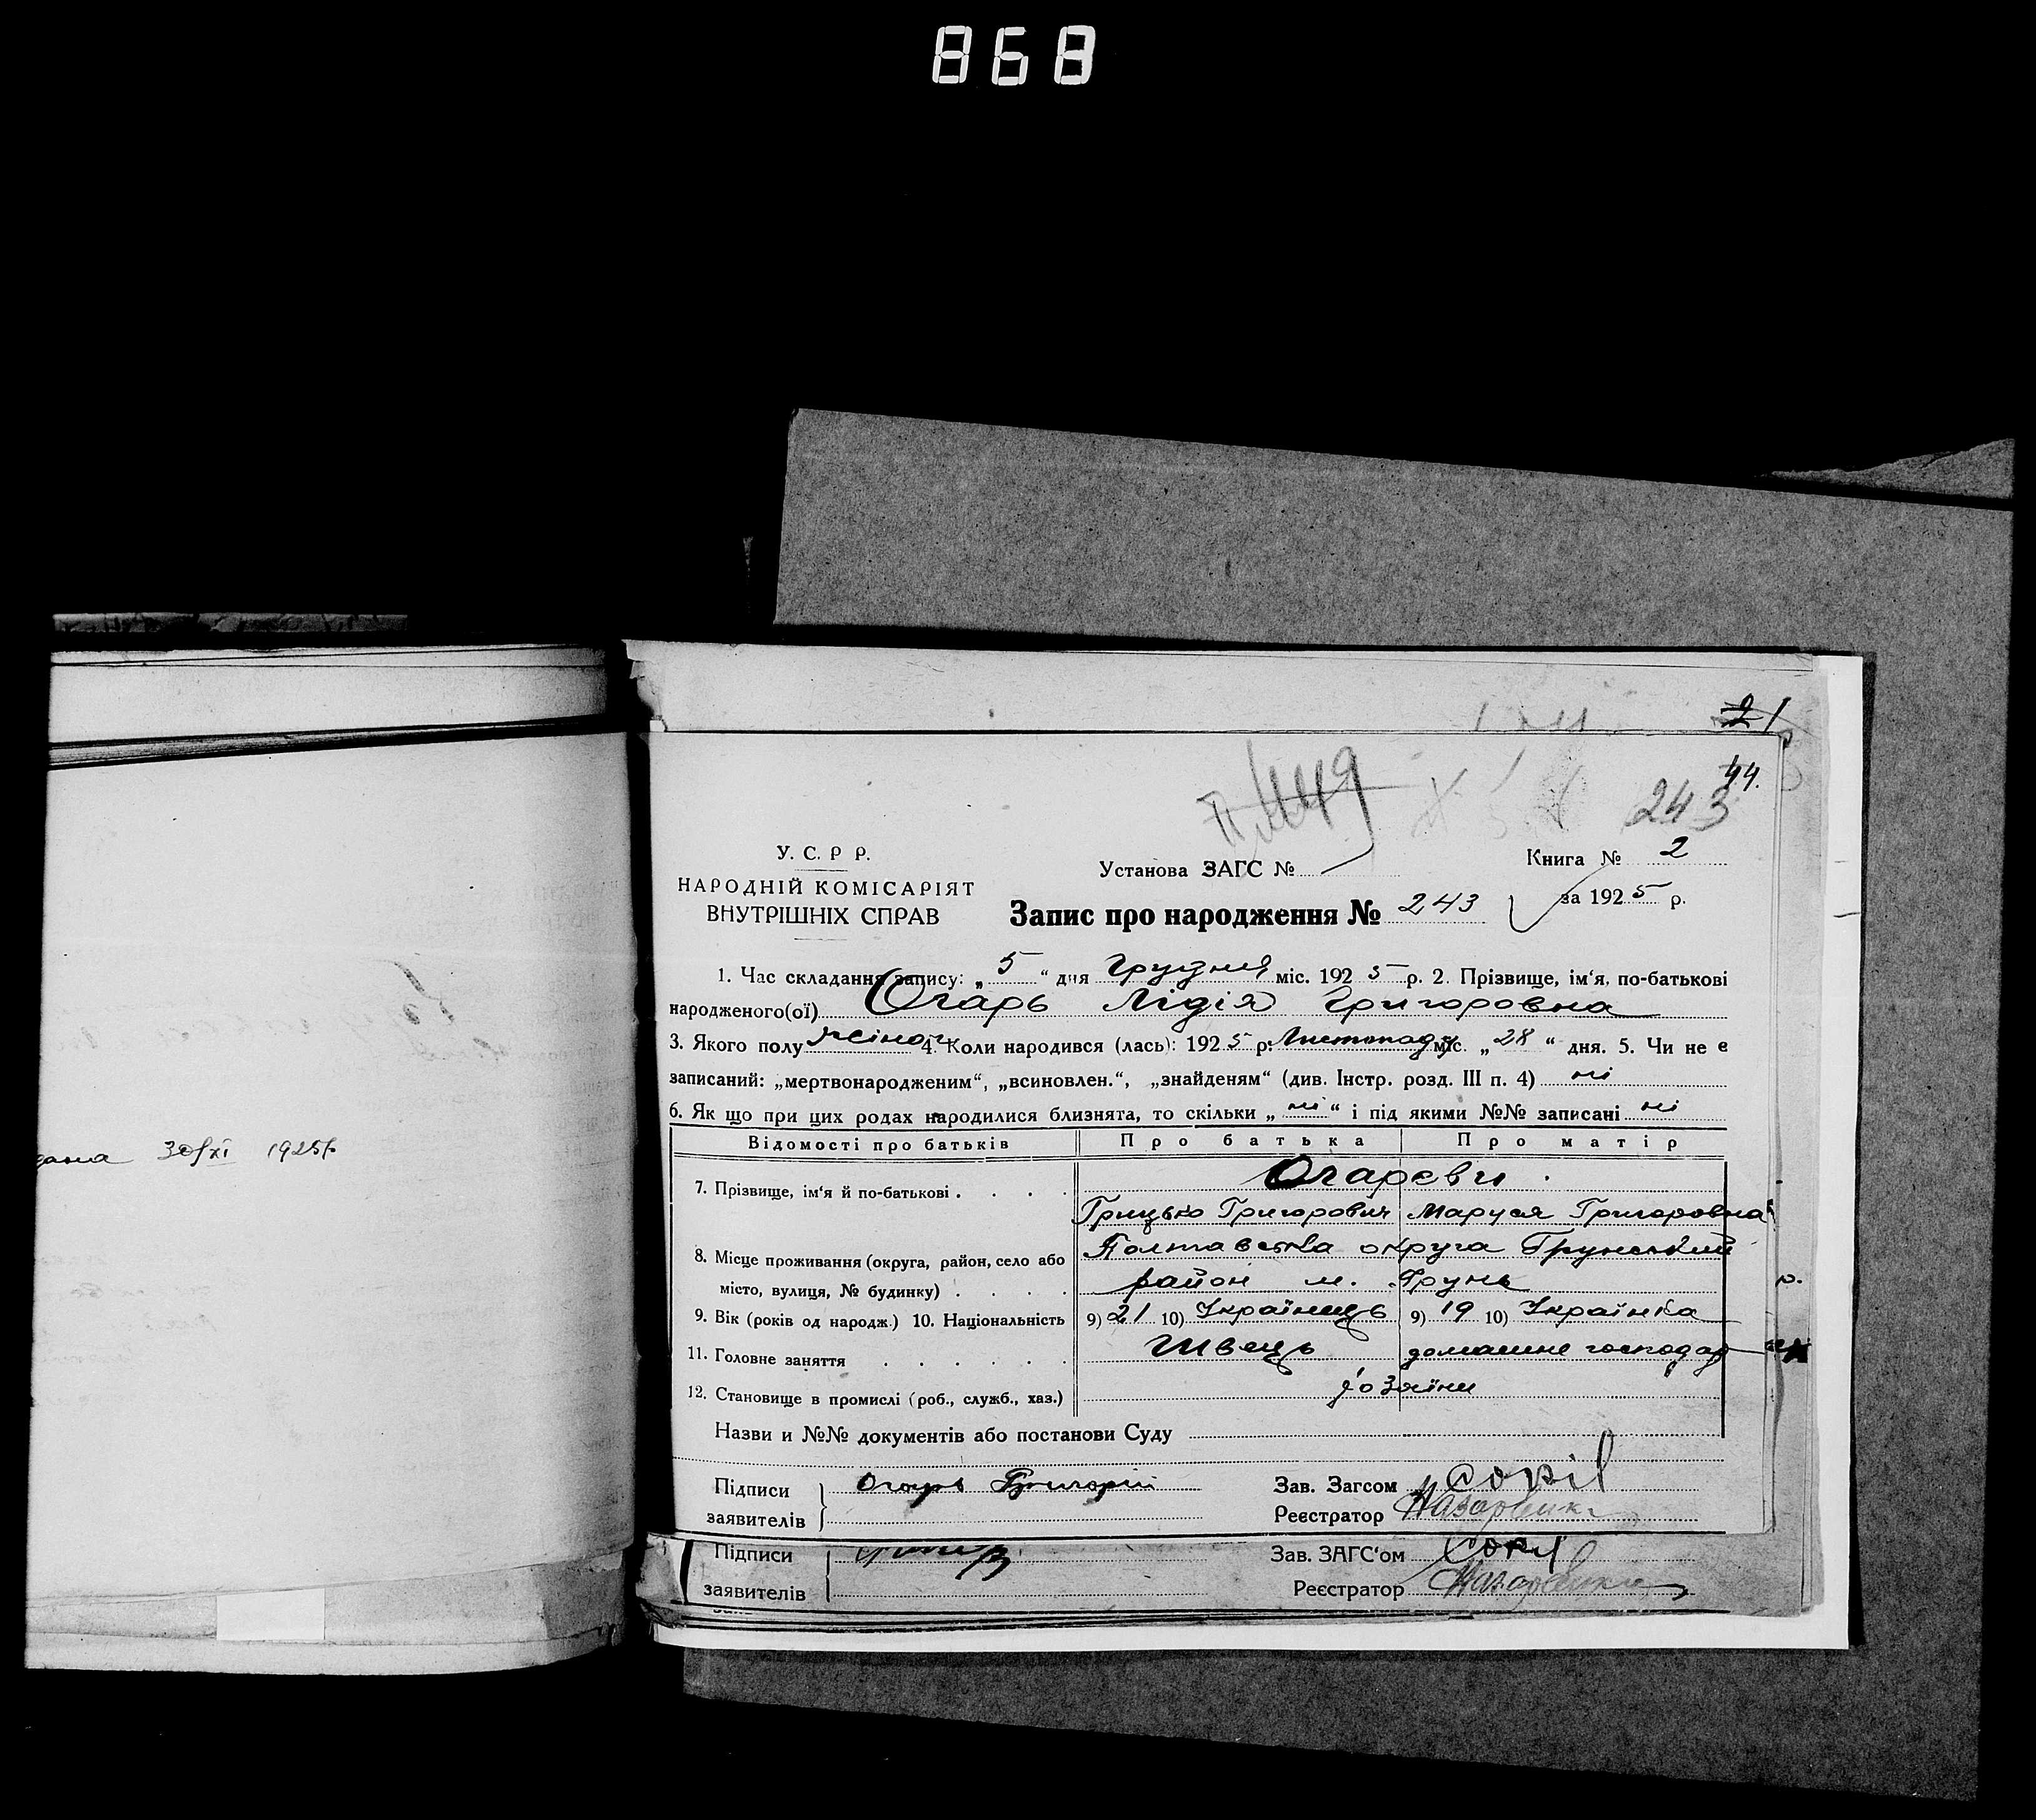 868
21
44.
243
У. С. Р Р.
НАРОДНІЙ КОМІСАРІЯТ
ВНУТРІШНІХ СПРАВ
Установа ЗАГС №
Книга № 2
за 1925 р.
Запис про народження № 243
1. Час складання запису: „5“ дня Грудня міс. 1925 р. 2. Прізвище, ім‘я, по-батькові
народженого(ої) Огарь Лідія Григоровна
3. Якого полу жіноч. 4. Коли народився (лась): 1925 р. Листопаду міс. „28“ дня. 5. Чи не є
записаний: „мертвонародженим“, „всиновлен.“, „знайденям“ (див. Інстр. розд. III п. 4) ні
6. Як що при цих родах народилися близнята, то скільки „ні“ і під якими №№ записані ні
Відомості про батьків Про батька Про матір
7. Прізвище, ім‘я й по-батькові . . . . Огареви.
Грицько Григорович Маруся Григоровна
8. Місце проживання (округа, район, село або Полтавська округа Грунський
місто, вулиця, № будинку) . . . . район м. Грунь
9. Вік (років од народж.) 10. Національність 9) 21 10) Українець 9) 19 10) Українка
11. Головне заняття . . . . . . Швець домашне господар
12. Становище в промислі (роб., служб., хаз.)
Назви и №№ документів або постанови Суду
Підписи Огарь Григорій Зав. Загсом
заявителів Реєстратор
Підписи Зав. ЗАГС‘ом
заявителів Реєстратор
30/XI 1925р